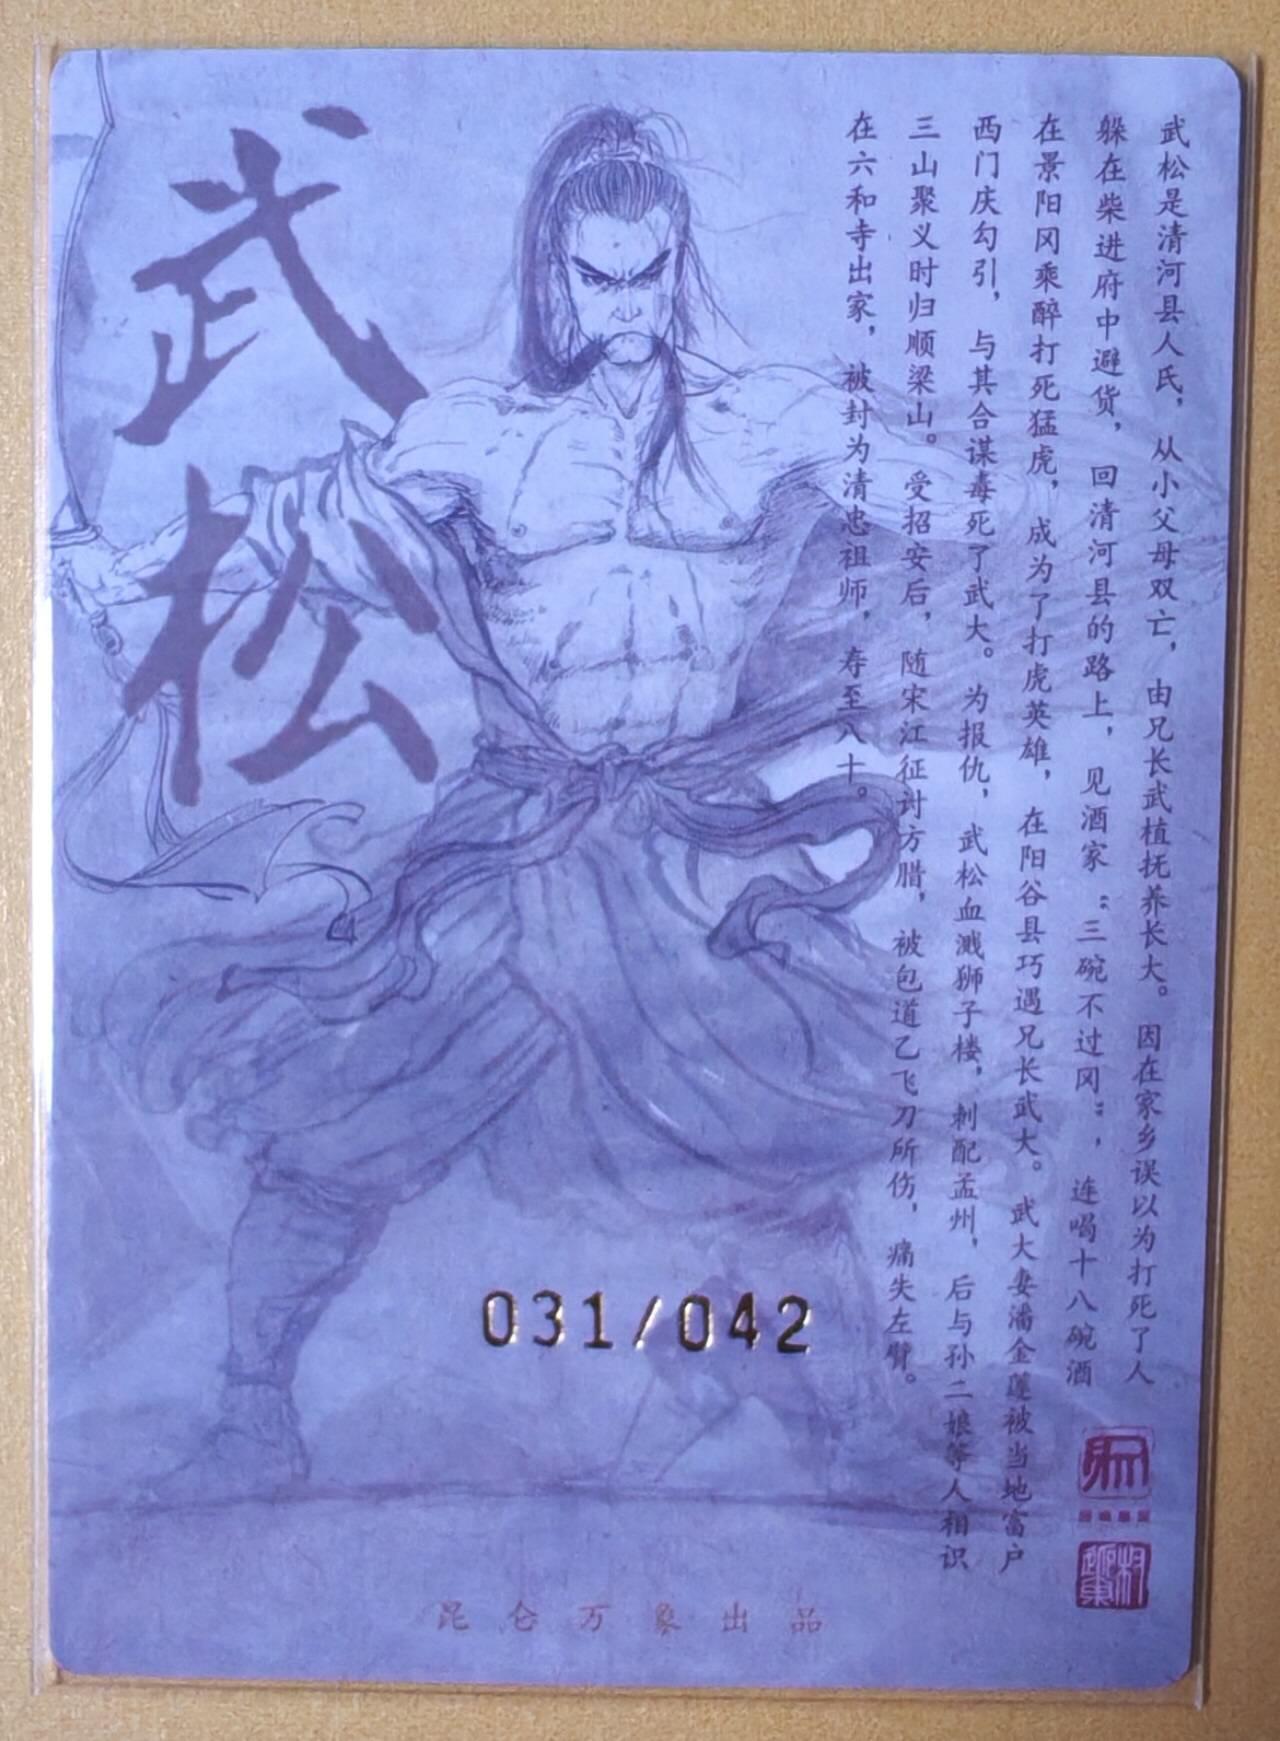 武松
武松是清河县人氏，从小父母双亡，由兄长武植抚养长大。因在家乡误以为打死了人
躲在柴进府中避货，回清河县的路上，见酒家“三碗不过冈”，连喝十八碗酒
在景阳冈乘醉打死猛虎，成为了打虎英雄，在阳谷县巧遇兄长武大。武大妻潘金莲被当地富户
西门庆勾引，与其合谋毒死了武大。为报仇，武松血溅狮子楼，刺配孟州，后与孙二娘等人相识
三山聚义时归顺梁山。受招安后，随宋江征讨方腊，被包道乙飞刀所伤，痛失左臂。
在六和寺出家，被封为清忠祖师，寿至八十。
031/042
昆仑万象出品